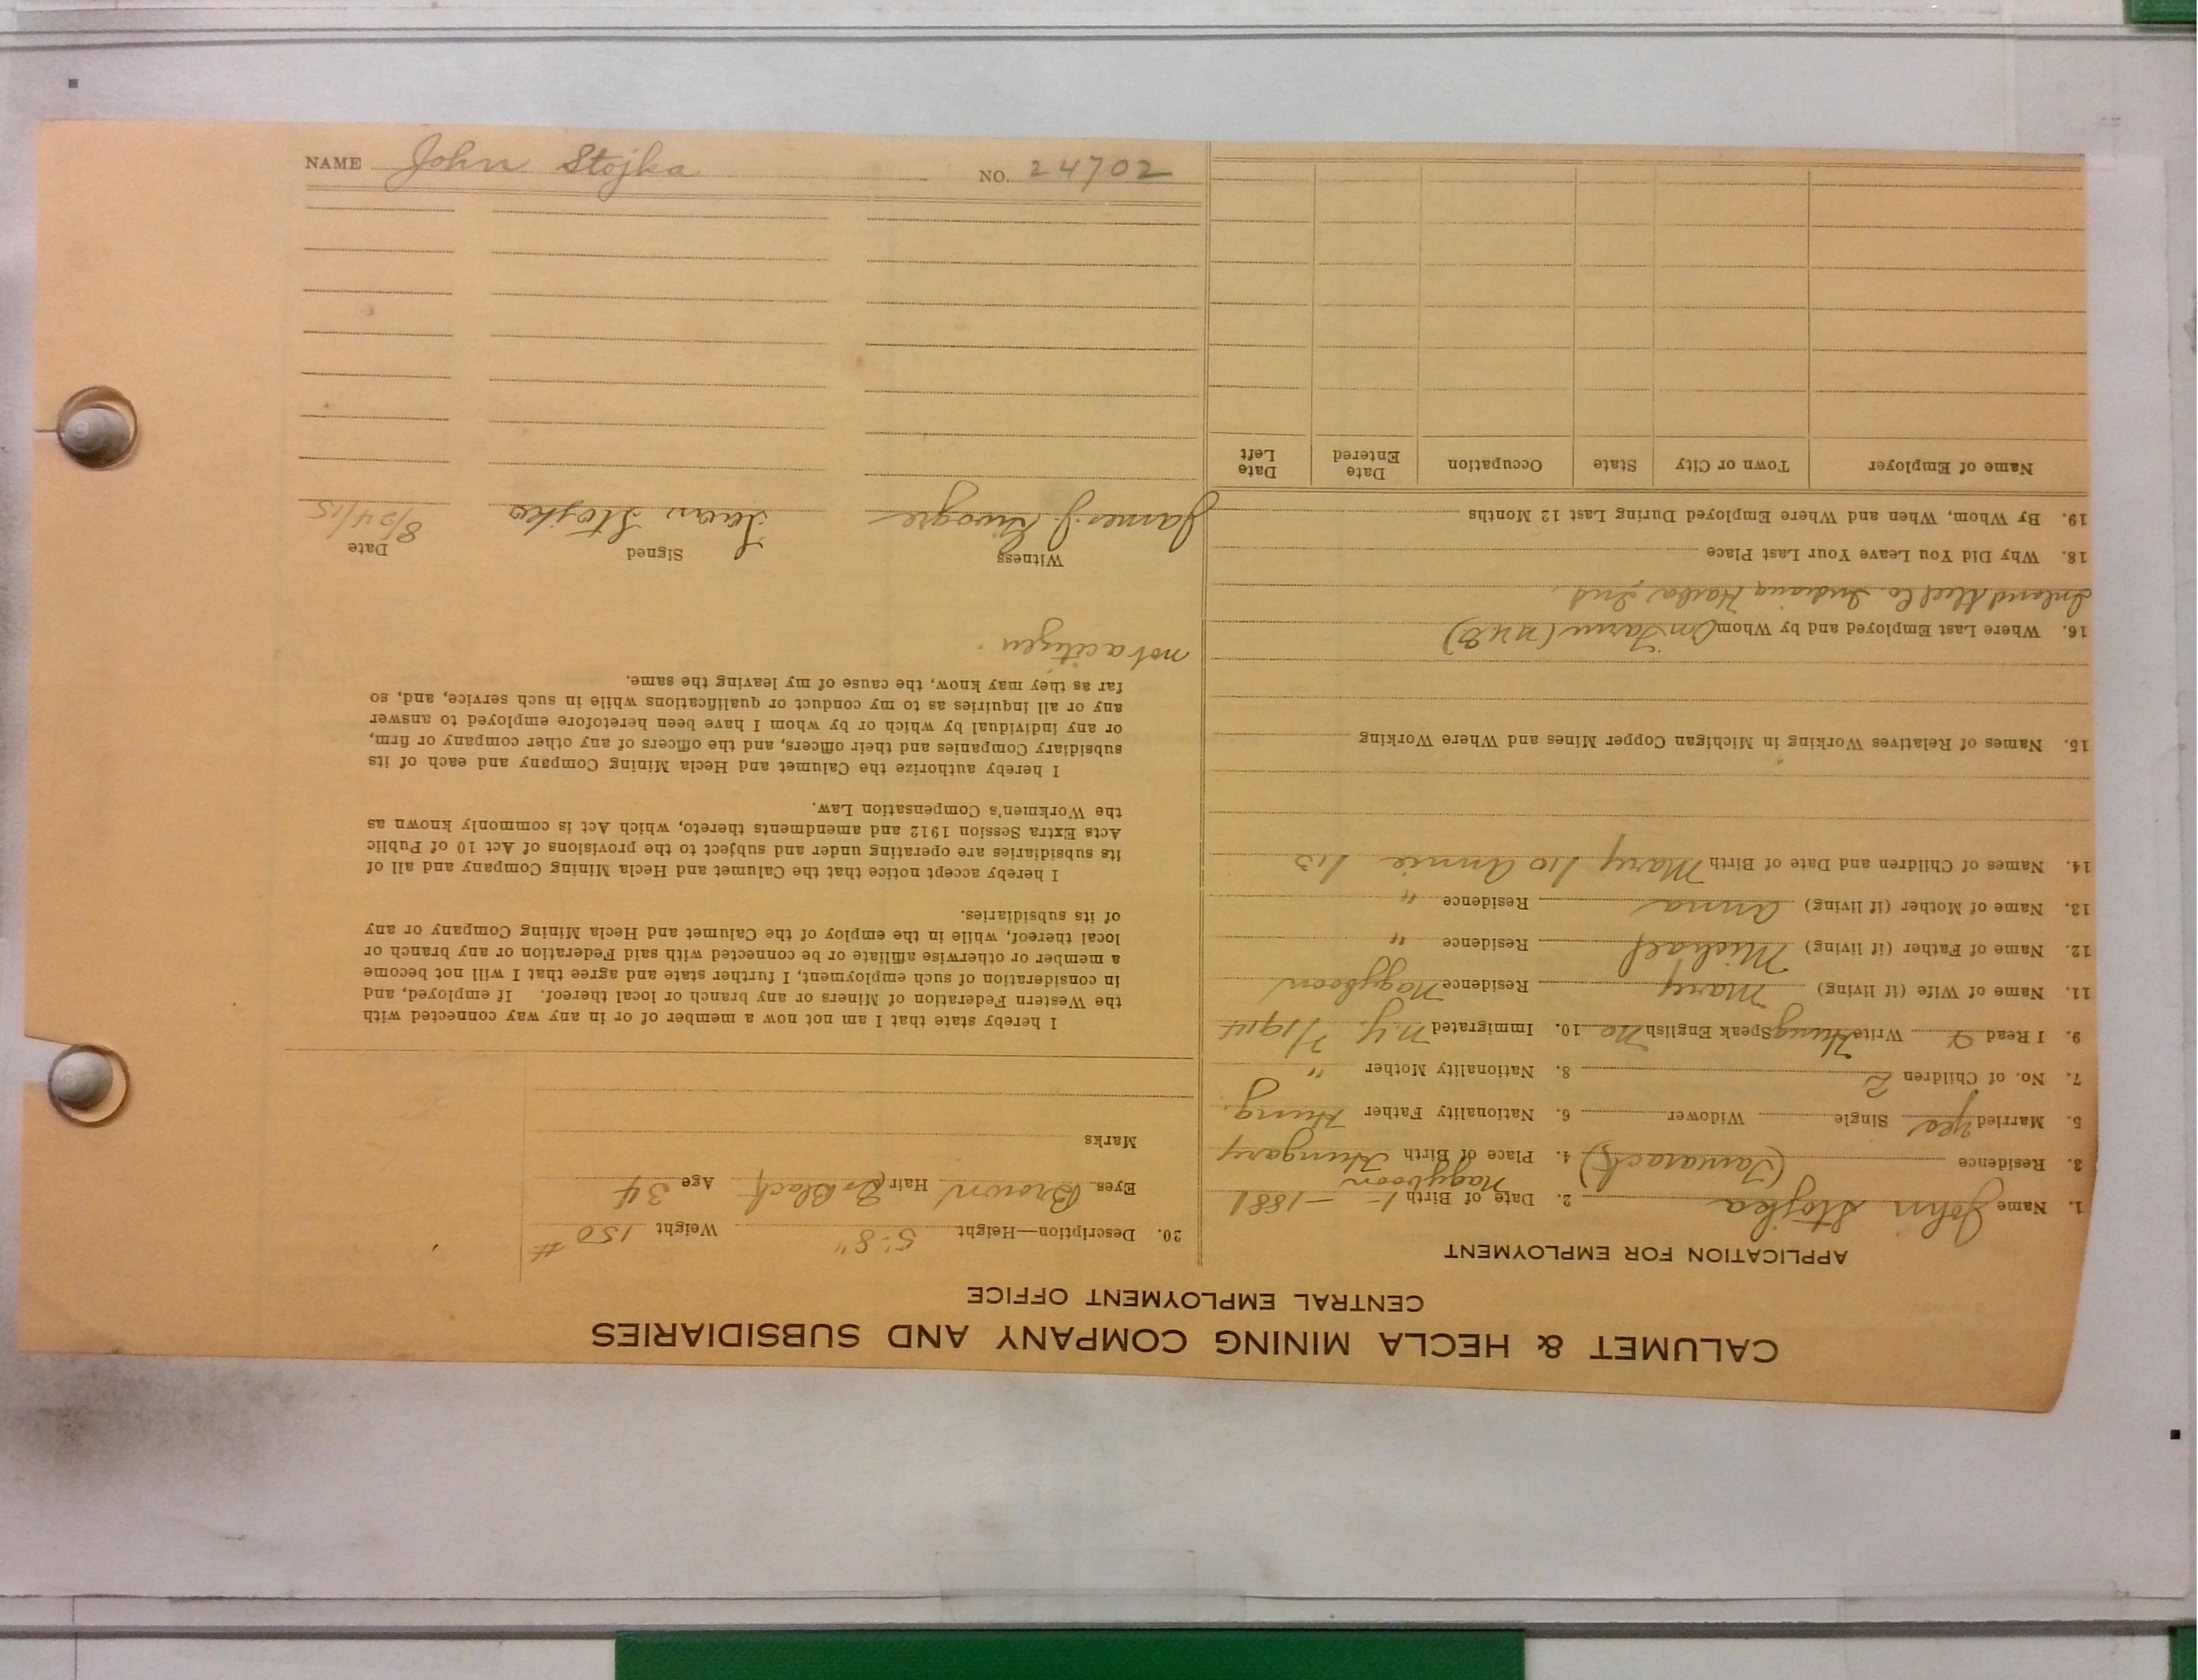 CALUMET & HECLA MINING COMPANY AND SUBSIDIARIES
CENTRAL EMPLOYMENT OFFICE
APPLICATION FOR EMPLOYMENT
1. Name John Stojka 2. Date of Birth 1- -1881
Nagyboon
3. Residence (Tamarack) 4. Place of Birth Hungary
5. Married yes Single Widower 6. Nationality Father Hung.
7. No. of Children 2 8. Nationality Mother "
9. I Read & Write Hung Speak English No 10. Immigrated N.Y. 7/1914
11. Name of Wife (if living) Mary Residence Nagyboon
12. Name of Father (if living) Michael Residence "
13. Name of Mother (if living) Anna Residence "
14. Names of Children and Date of Birth Mary 1/10 Annie 1/13
15. Names of Relatives Working in Michigan Copper Mines and Where Working
16. Where Last Employed and by Whom On Farm
Inland Steel Co. Indiana Harbor, Ind.
18. Why Did You Leave Your Last Place
19. By Whom, When and Where Employed During Last 12 Months
Name of Employer Town or City State Occupation Date Entered Date Left
20. Description—Height 5'8" Weight 150 #
Eyes Brown Hair Dr Black Age 34
Marks
I hereby state that I am not now a member of or in any way connected with
the Western Federation of Miners or any branch or local thereof. If employed, and
in consideration of such employment, I further state and agree that I will not become
a member or otherwise affiliate or be connected with said Federation or any branch or
local thereof, while in the employ of the Calumet and Hecla Mining Company or any
of its subsidiaries.
I hereby accept notice that the Calumet and Hecla Mining Company and all of
its subsidiaries are operating under and subject to the provisions of Act 10 of Public
Acts Extra Session 1912 and amendments thereto, which Act is commonly known as
the Workmen's Compensation Law.
I hereby authorize the Calumet and Hecla Mining Company and each of its
subsidiary Companies and their officers, and the officers of any other company or firm,
or any individual by which or by whom I have been heretofore employed to answer
any or all inquiries as to my conduct or qualifications while in such service, and, so
far as they may know, the cause of my leaving the same.
not a citizen.
Witness Signed Date
James J. Stojka 8/24/15
NAME John Stojka NO. 24702